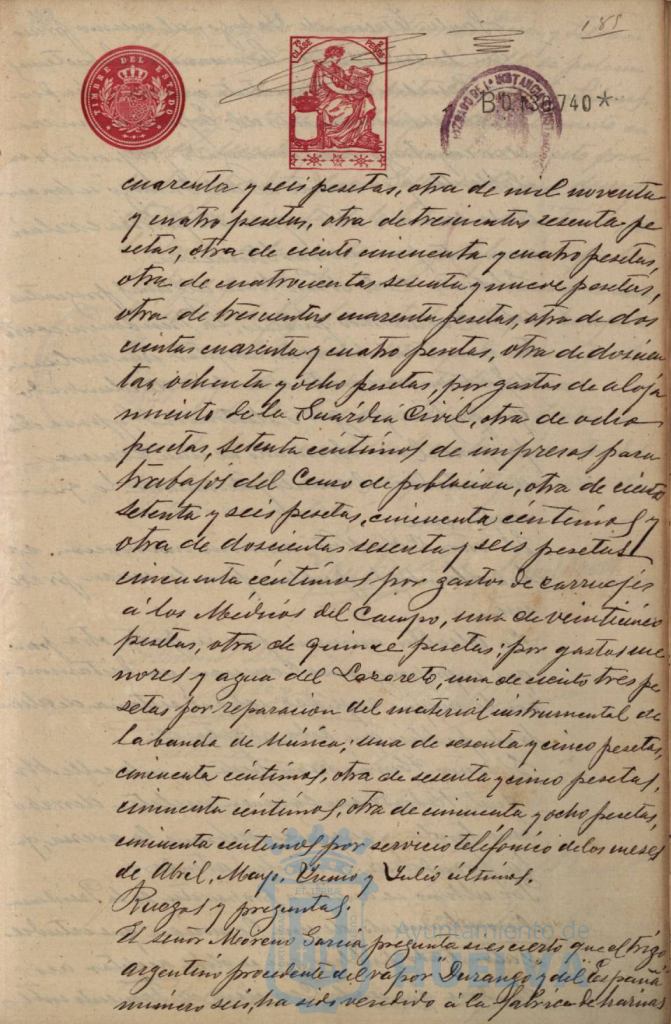 185
TIMBRE DEL ESTADO
7ª CLASE
PESETAS
JUZGADO DE 1ª INSTANCIA
B.0.130.740*
cuarenta y seis pesetas, otra de mil noventa
y cuatro pesetas, otra de trescientas sesenta pe
setas, otra de ciento cincuenta y cuatro pesetas,
otra de cuatrocientas sesenta y nueve pesetas,
otra de trescientas cuarenta pesetas, otra de dos
cientas cuarenta y cuatro pesetas, otra de doscien
tas ochenta y ocho pesetas, por gastos de aloja
miento de la Guardia Civil, otra de ocho
pesetas, setenta céntimos de impresos para
trabajos del Censo de poblacion, otra de ciento
setenta y seis pesetas, cincuenta céntimos y
otra de doscientas sesenta y seis pesetas
cincuenta céntimos por gastos de carruajes
á los Médicos del Campo, una de veinticinco
pesetas, otra de quince pesetas; por gastos me
nores y agua del Lazareto, una de ciento tres pe
setas por reparacion del material instrumental de
la banda de Música; una de sesenta y cinco pesetas,
cincuenta céntimos, otra de sesenta y cinco pesetas,
cincuenta céntimos, otra de cincuenta y ocho pesetas,
cincuenta céntimos por servicio telefónico de los meses
de Abril, Mayo, Junio y Julio últimos.
Ruegos y preguntas.
El señor Moreno García pregunta si es cierto que el trigo
argentino procedente del vapor "Durango" y del "España"
número seis, ha sido vendido á la fábrica de harinas
Ayuntamiento de
HUELVA